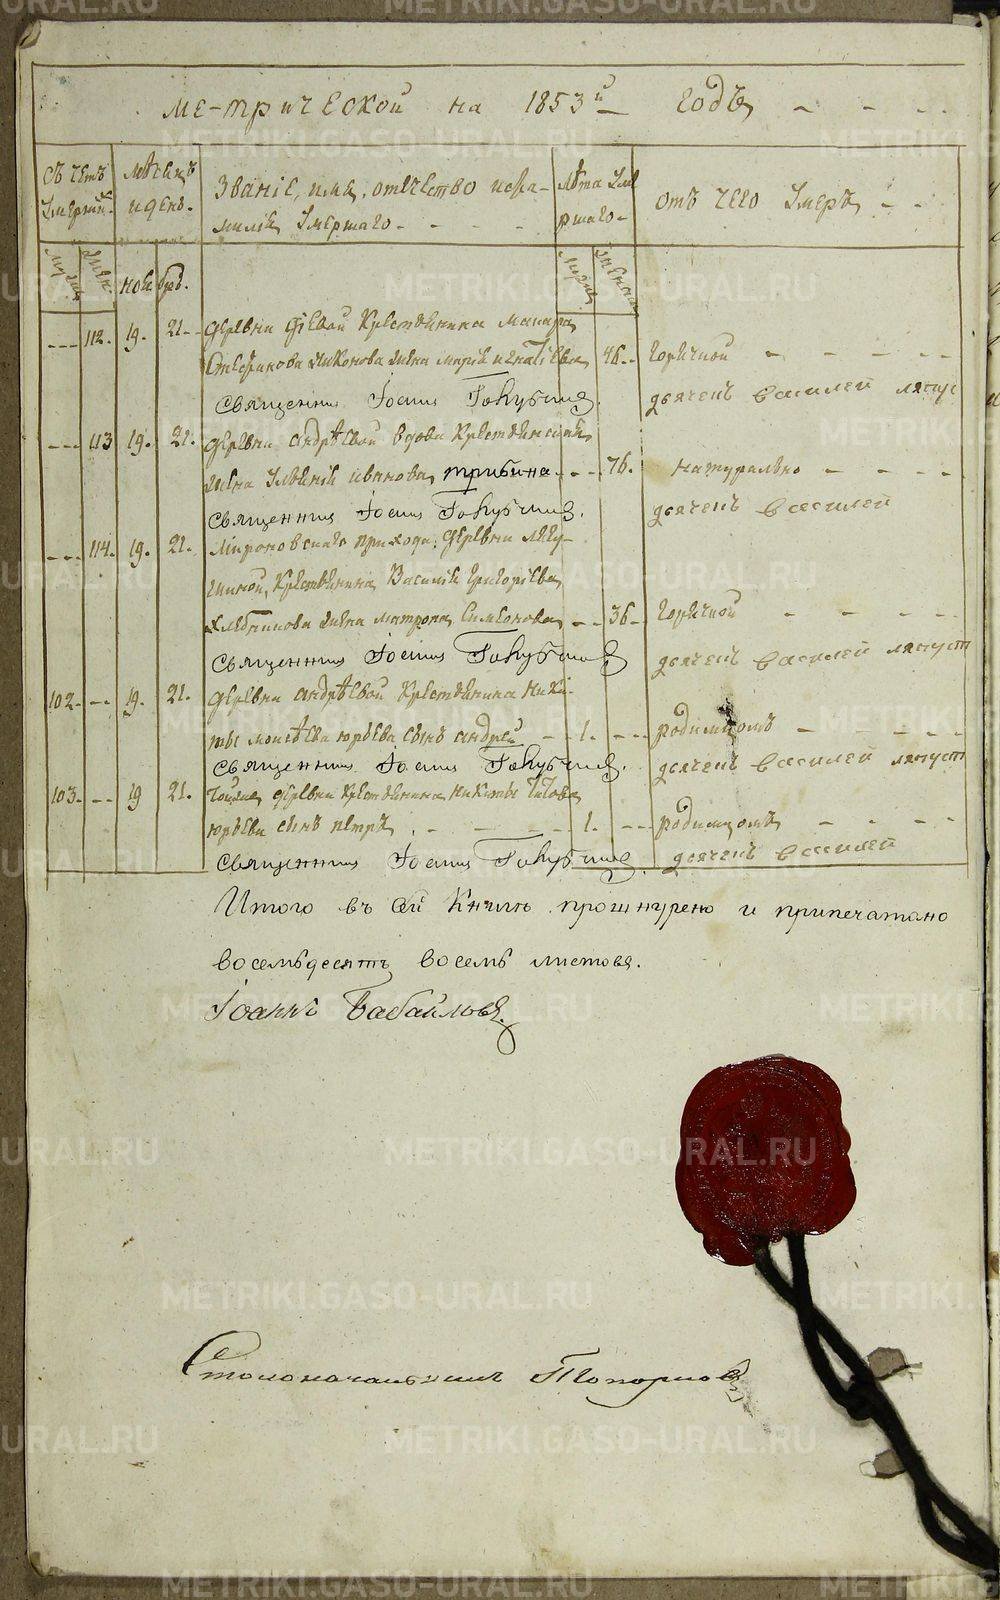 метрической на 1853й годъ
Счетъ умершихъ
Мѣсяцъ и день.
Званіе, имя, отечество и фамилія Умершаго
Лѣта Умершаго
отъ чего Умеръ
ноября.
112. 19. 21. деревни крестьянина Макара
Никонова жена Марія Игнатіева 46. Горячкой
Священникъ Іоаннъ дьячекъ Василей
113 19. 21. деревни Андрѣевой вдова крестьянская
жена Ульянія Иванова 76. Натурально
Священникъ Іоаннъ дьячекъ Василей
114. 19. 21. Мироновскаго прихода, деревни
крестьянина Василія Григорьева
жена Матрона Симеонова 36 Горячкой
Священникъ Іоаннъ дьячекъ Василей
102. 19. 21. деревни Андрѣевой крестьянина Ники-
ты Моисѣева Юрьева сынъ Андрей 1. родимцомъ
Священникъ Іоаннъ дьячекъ Василей
103. 19 21. Тояже деревни крестьянина Никиты Титова
Юрьева сынъ Петръ 1. родимцомъ
Священникъ Іоаннъ дьячекъ Василей
Итого въ сей Книгѣ прошнурено и припечатано
восемьдесятъ восемь листовъ.
Іоаннъ Бабайловъ.
Столоначальникъ Топорковъ
METRIKI.GASO-URAL.RU